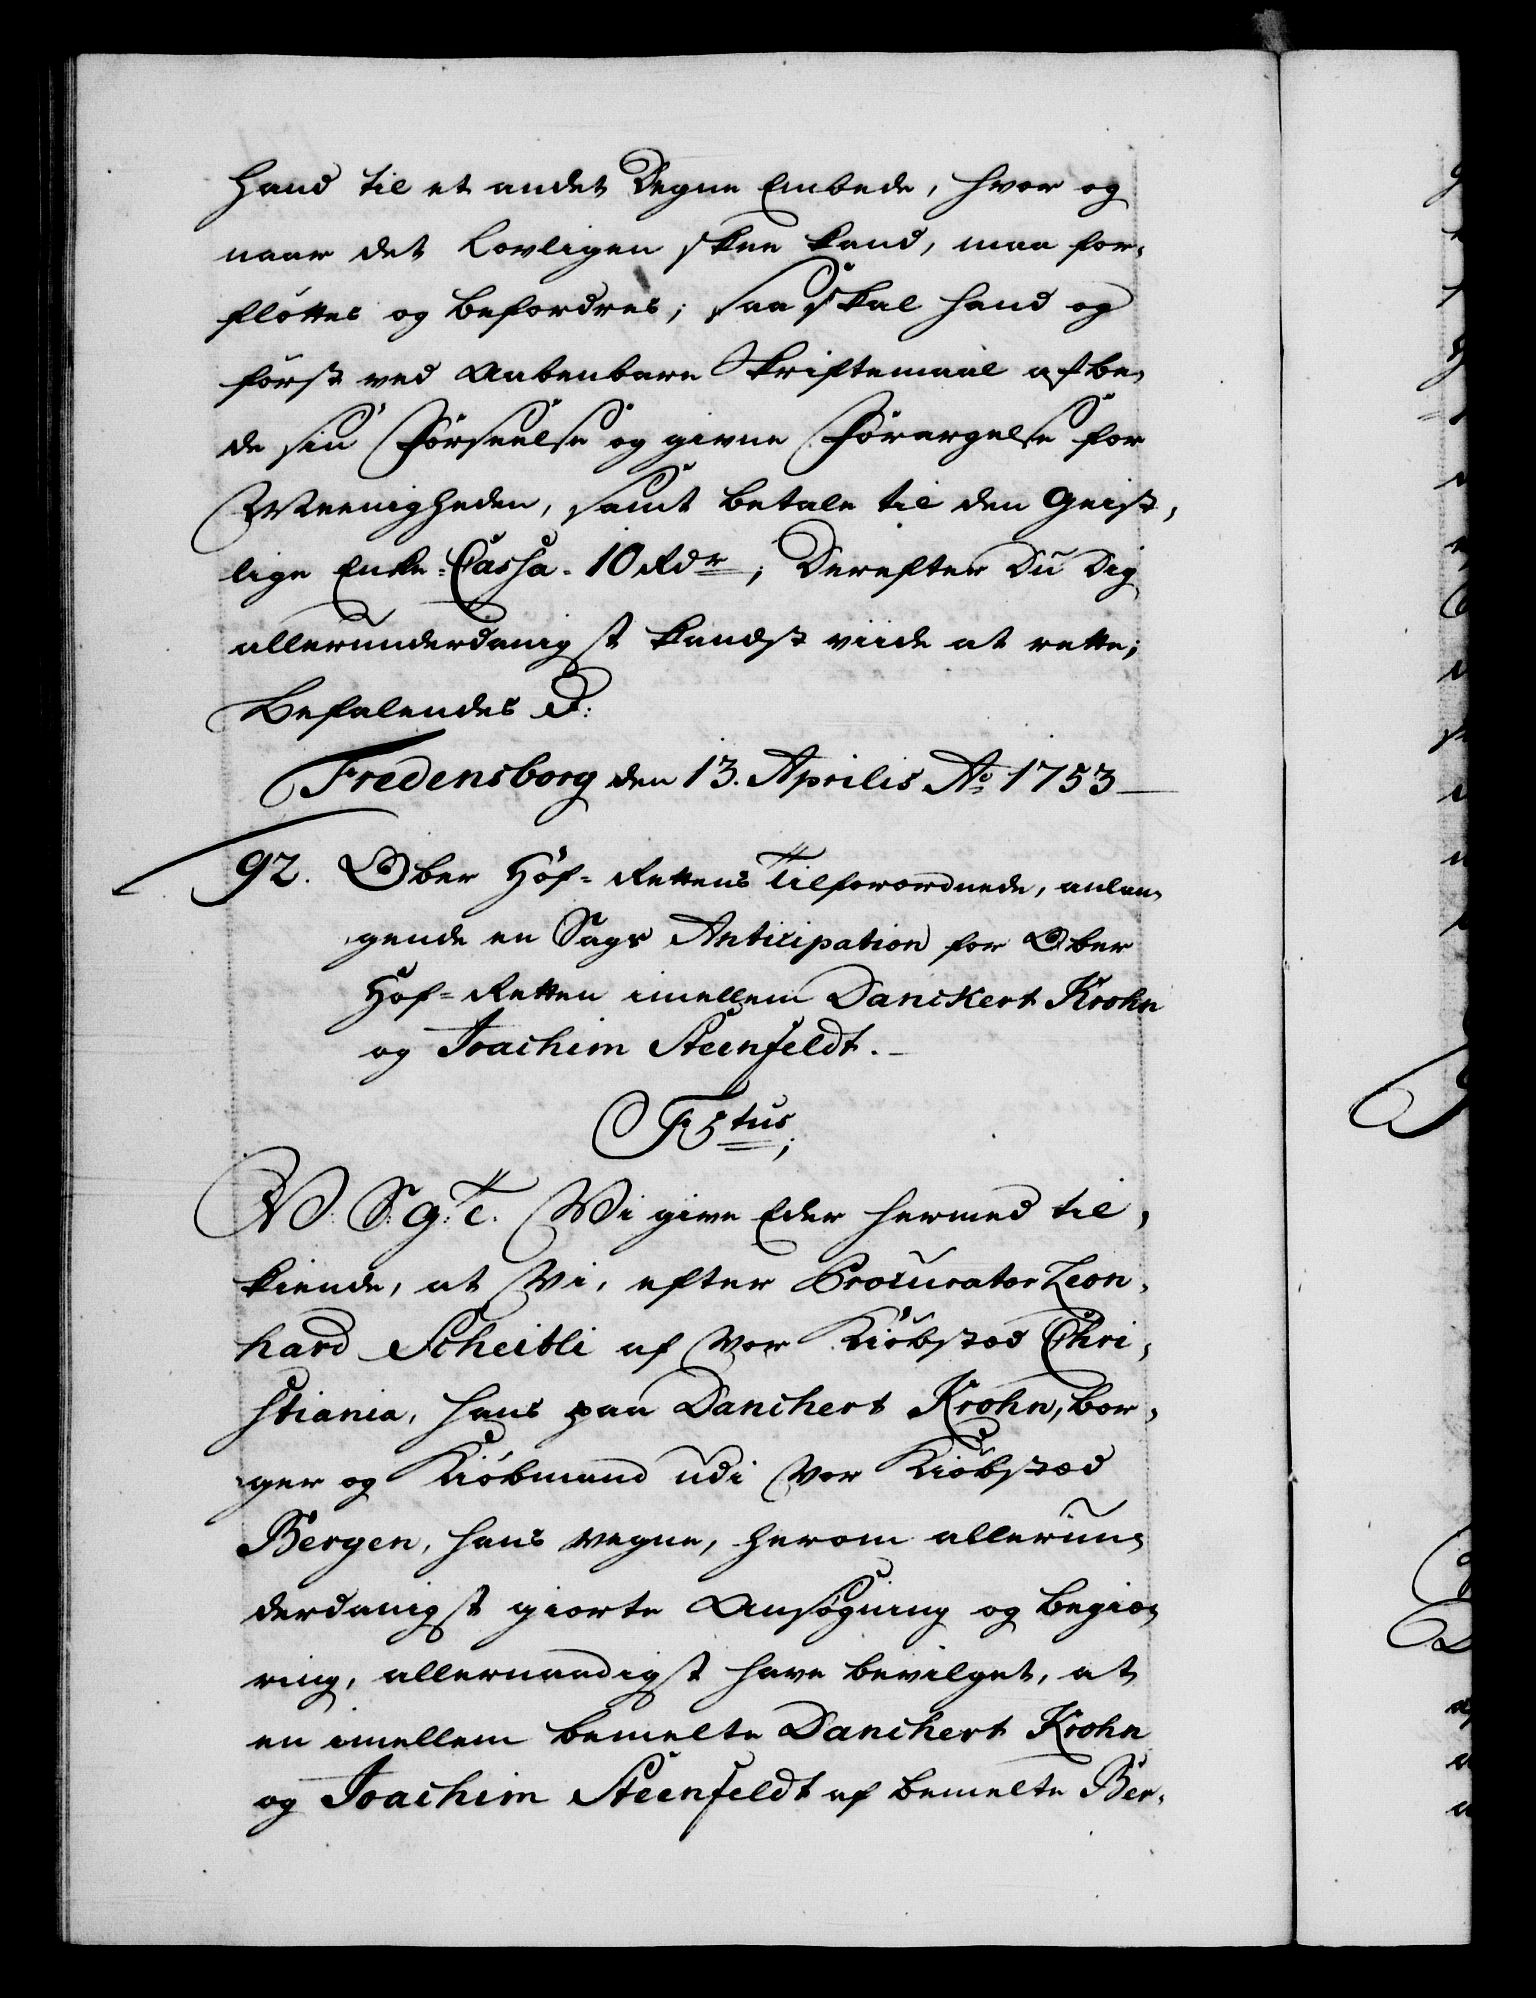 hand til et andet Degne Embede, hvor og
naar det lovligen skee kand, maa for,
fløttes og befordres; saa skal hand og
først ved Aabenbare Skriftemaal afbe,
de sin Forseelse og givne Forargelse for
Meenigheden, samt betale til den Geist,
lige Enke-Cassa. 10 Rdr; Derefter Du Dig
allerunderdanigst kandst viide at rette;
Befalendes D:
Fredensborg den 13. Aprilis Ao 1753
92. Ober Hof-Rettens Tilforordnede, anlan,
gende en Sags Anticipation for Ober
Hof-Retten imellem Danckert Krohn
og Joachim Steenfeldt.
F5tus;
W. S. g. T. Wi give Eder hermed til,
kiende, at Wi, efter Procurator Leon,
hard Scheitli af Vor Kiøbstæd Chri,
stiania, hans paa Danchert Krohn, bor,
ger og Kiøbmand udi Vor Kiøbstæd
Bergen, hans vegne, herom allerun,
derdanigst giorte Ansøgning og begiæ,
ring, allernaadigst have bevilget, at
en imellem bemelte Danchert Krohn
og Joachim Steenfeldt af bemelte Ber,